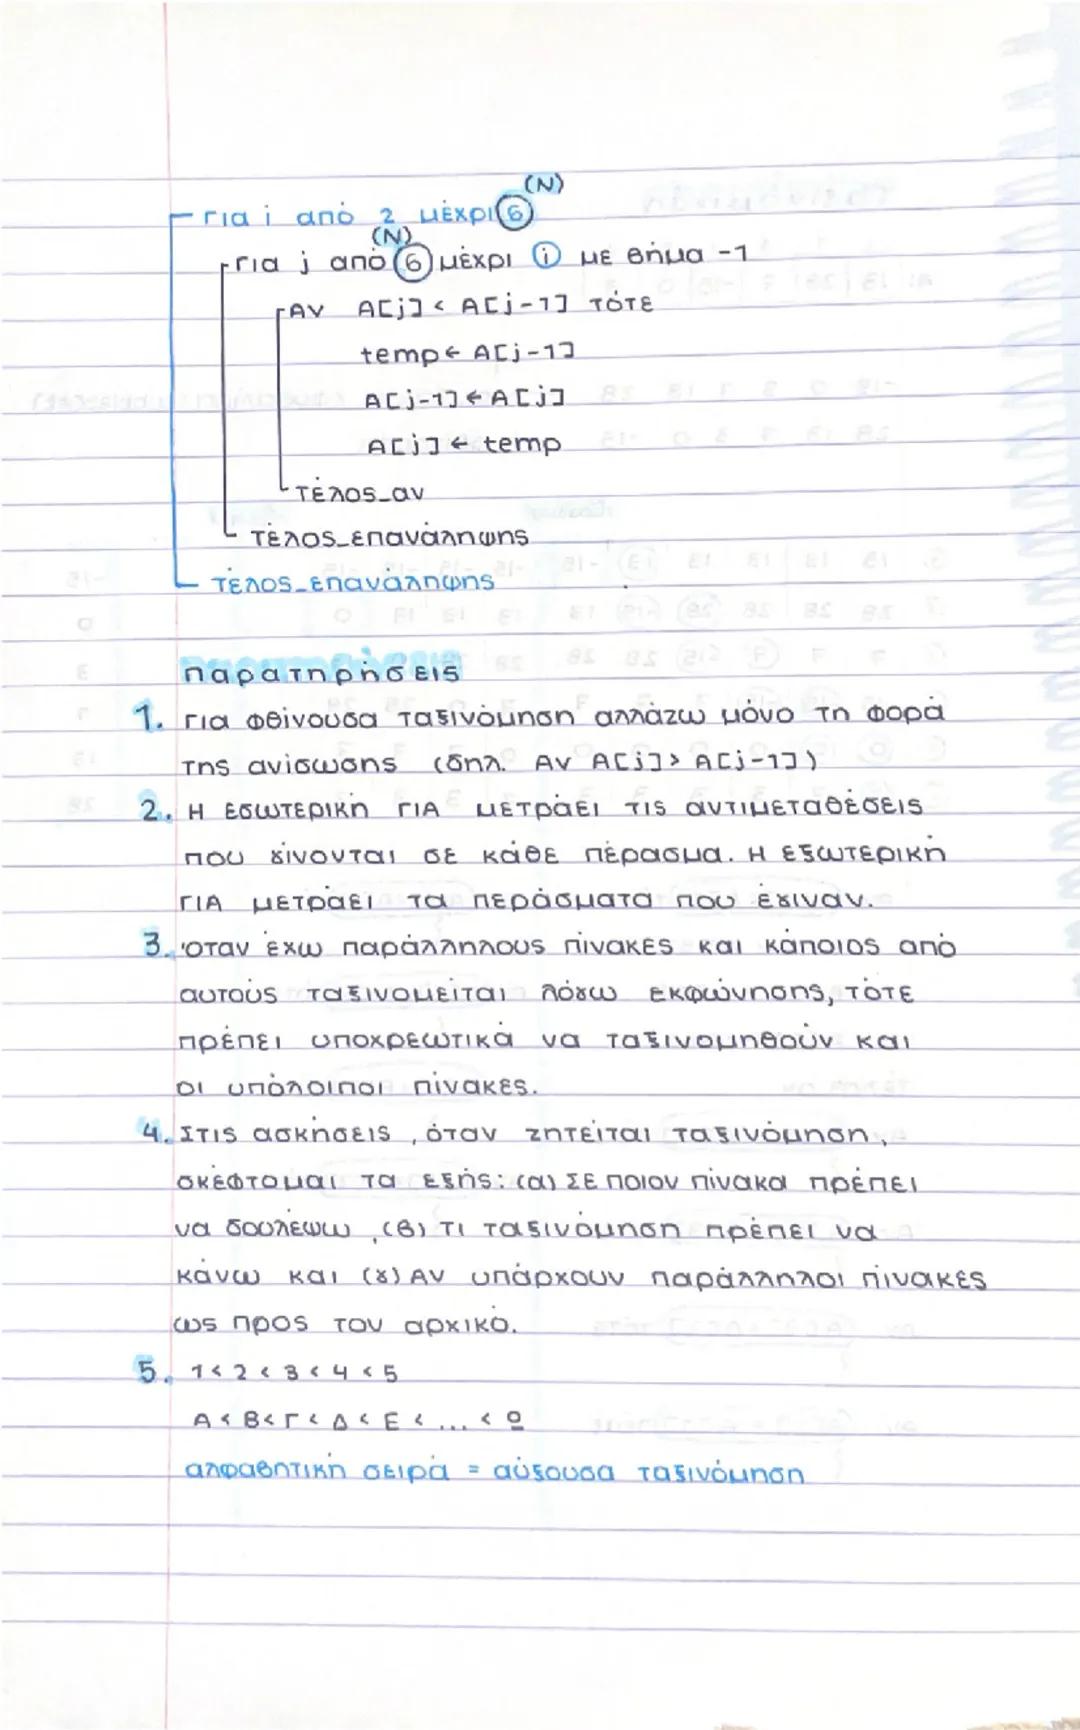 (N)
Για i από 2 μέχρι 6
(N)
Για j από 6 μέχρι i με βήμα -1
Αν A[j] < A[j-1] τότε
temp ← A[j-1]
A[j-1] ← A[j]
A[j] ← temp
Τέλος_αν
Τέλος_επανάληψης
Τέλος_επανάληψης
Παρατηρήσεις
1. Για φθίνουσα ταξινόμηση αλλάζω μόνο τη φορά
της ανίσωσης (δηλ. Αν A[j] > A[j-1])
2. Η εσωτερική ΓΙΑ μετράει τις αντιμεταθέσεις
που γίνονται σε κάθε πέρασμα. Η εξωτερική
ΓΙΑ μετράει τα περάσματα που έγιναν.
3. Όταν έχω παράλληλους πίνακες και κάποιος από
αυτούς ταξινομείται λόγω εκφώνησης, τότε
πρέπει υποχρεωτικά να ταξινομηθούν και
οι υπόλοιποι πίνακες.
4. Στις ασκήσεις, όταν ζητείται ταξινόμηση,
σκέφτομαι τα εξής: (α) Σε ποιον πίνακα πρέπει
να δουλέψω, (β) Τι ταξινόμηση πρέπει να
κάνω και (γ) Αν υπάρχουν παράλληλοι πίνακες
ως προς τον αρχικό.
5. 1 < 2 < 3 < 4 < 5
Α < Β < Γ < Δ < Ε < ... < Ω
αλφαβητική σειρά = αύξουσα ταξινόμηση